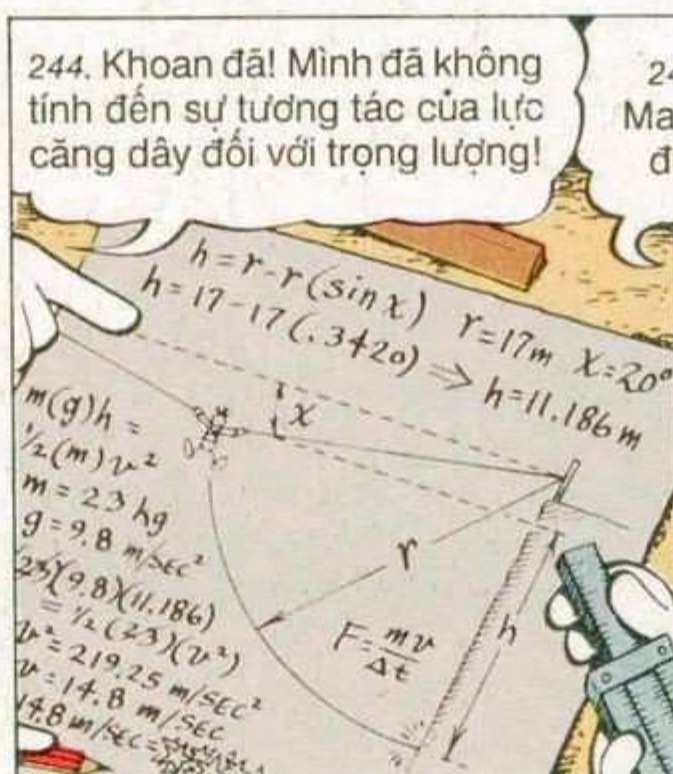 244. Khoan đã! Mình đã không
tính đến sự tương tác của lực
căng dây đối với trọng lượng!
24
Ma
đ
h=r-r(sin x) r=17m x=20°
h=17-17(.3420) ⇒ h=11.186m
x
m(g)h =
1/2(m)v²
m = 23 kg
g = 9.8 m/SEC²
(23)(9.8)(11.186)
= 1/2(23)(v²)
v² = 219.25 m/SEC²
v = 14.8 m/SEC
14.8 m/SEC =
r
h
F = mv/Δt